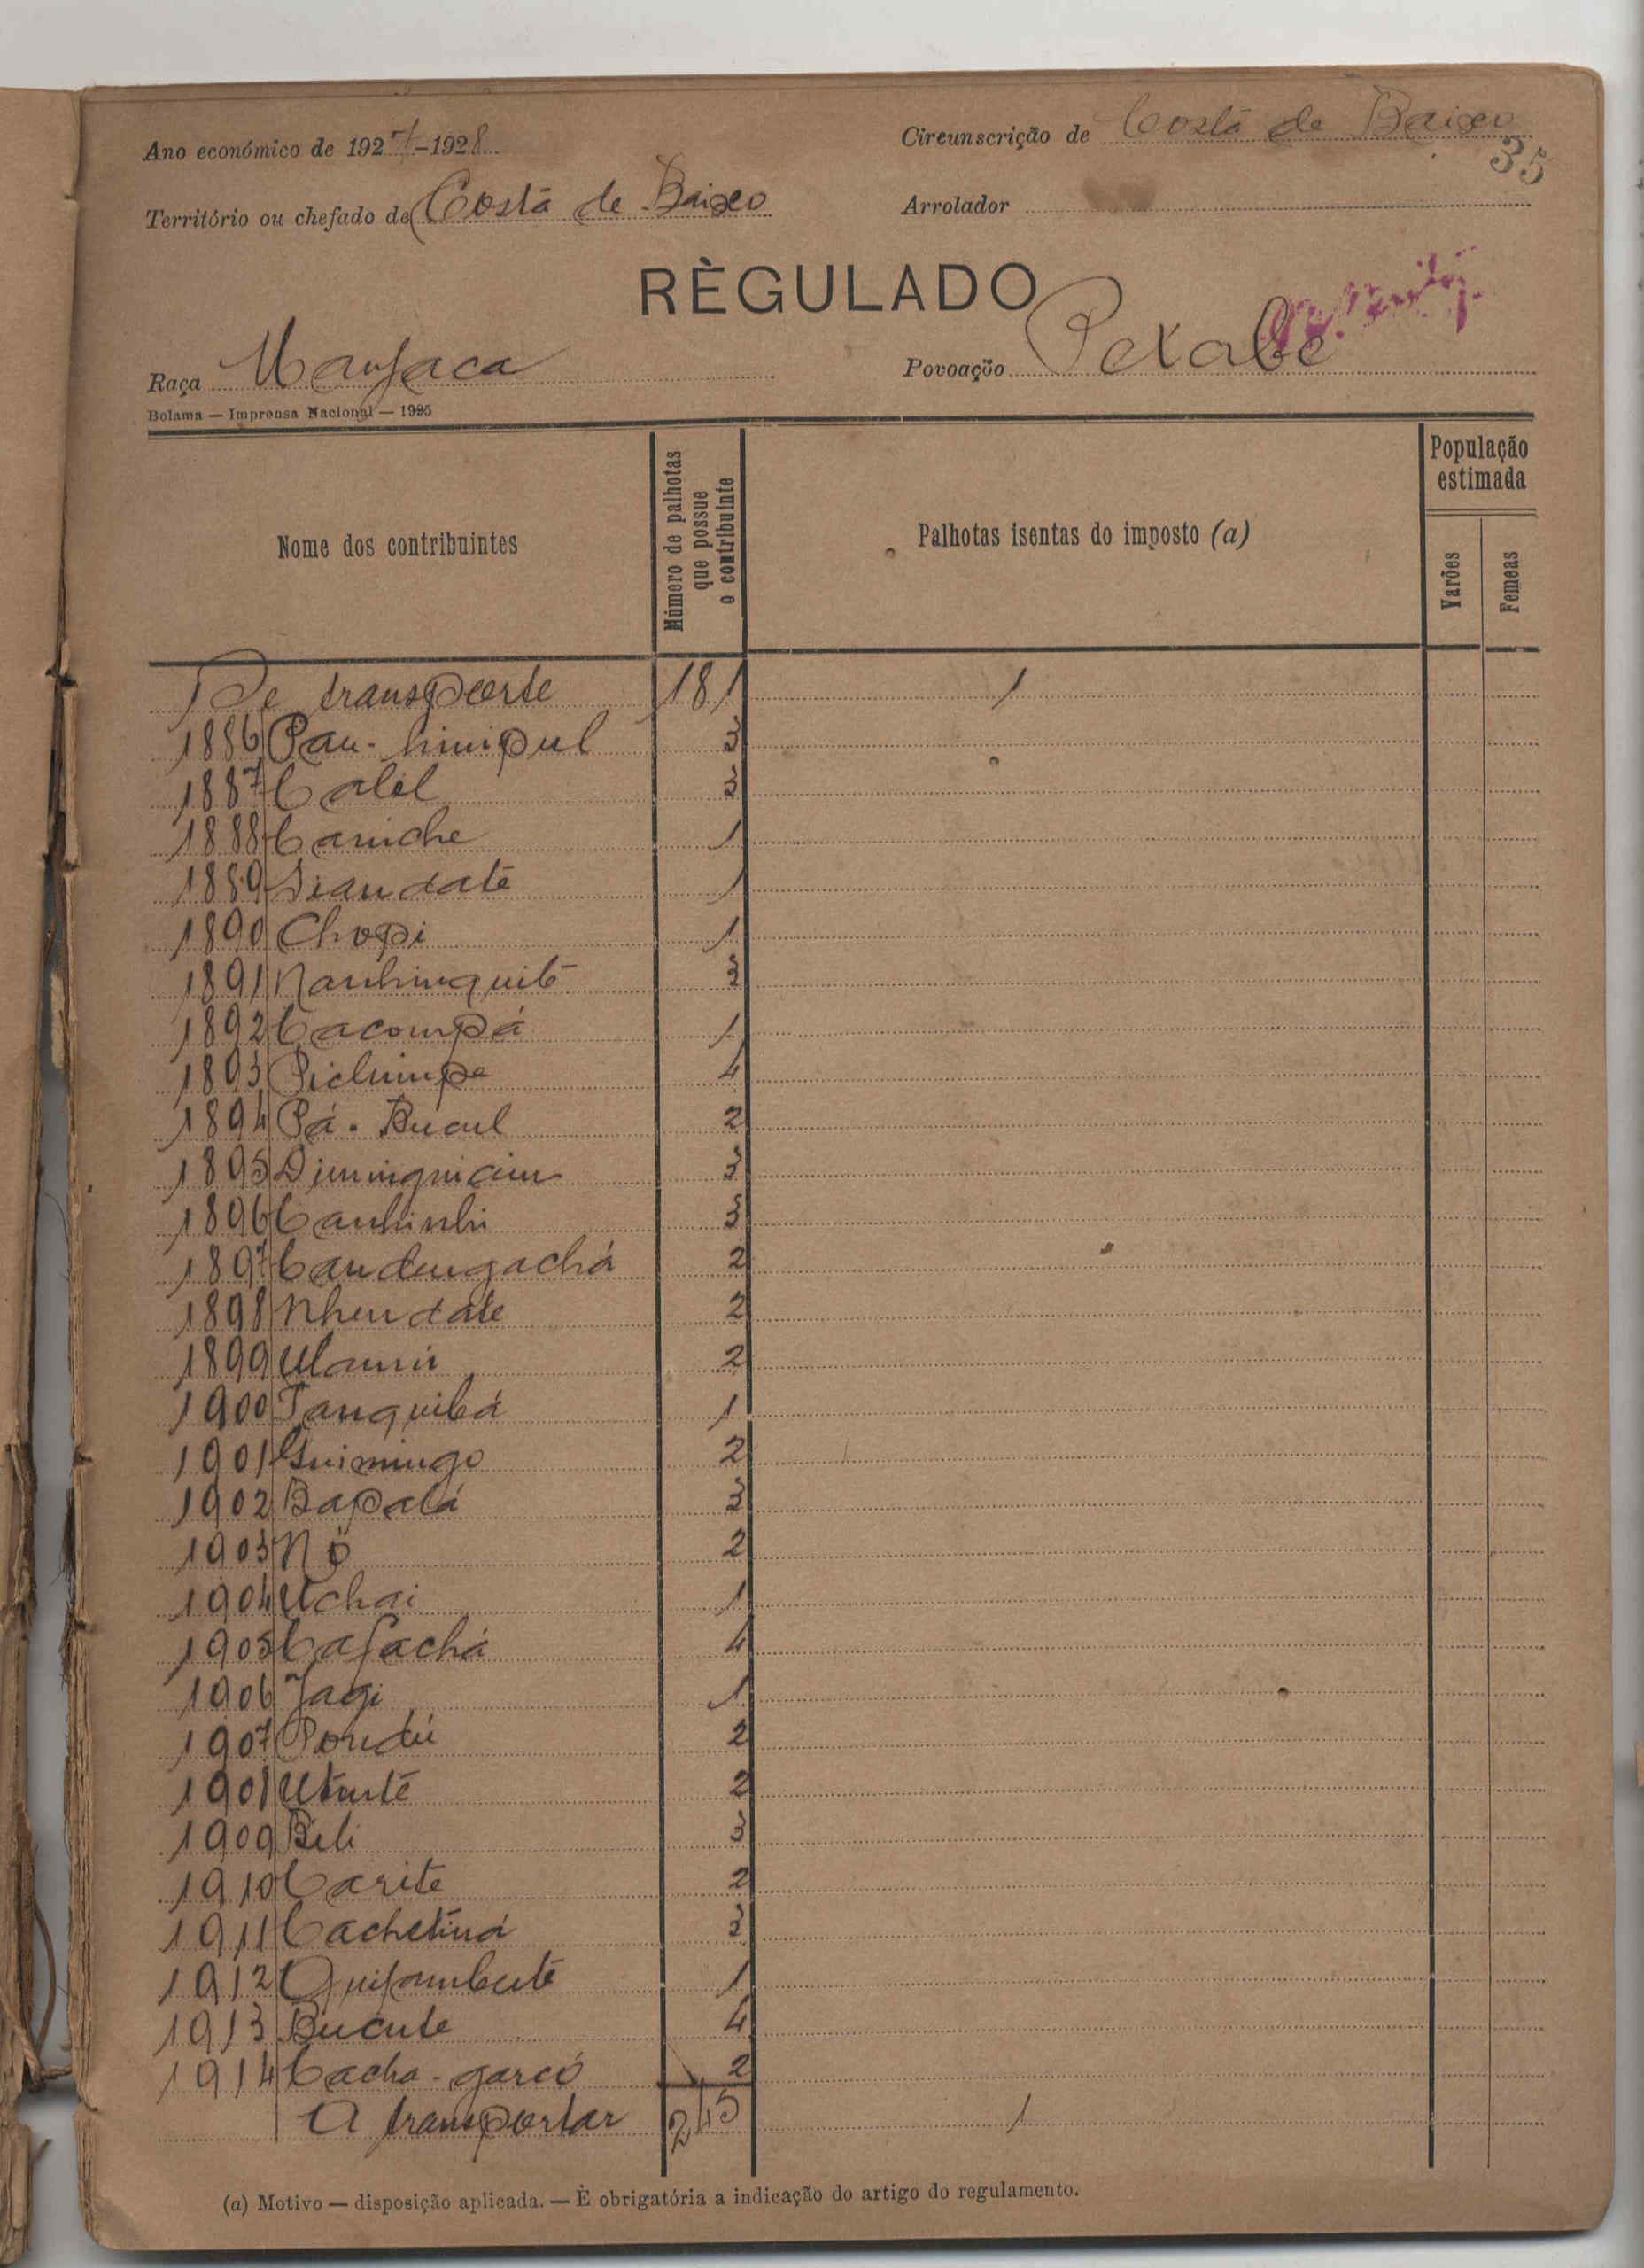 Ano económico de 1927-1928
Circunscrição de Costa de Baixo
35
Território ou chefado de Costa de Baixo
Arrolador
RÈGULADO
Raça Manjaca
Povoação Pexabe
Bolama — Imprensa Nacional — 1925
Nome dos contribuintes
Número de palhotas que possue o contribuinte
Palhotas isentas do imposto (a)
População estimada
Varões
Femeas
De transporte 181 1
1886 Pau-himipul 3
1887 Calil 3
1888 Caniche 1
1889 Siandaté 1
1890 Chopi 1
1891 Nanhinquité 3
1892 Cacompá 1
1893 Pichimpe 4
1894 Pá-Bucul 2
1895 3
1896 Canhinhi 3
1897 Candengachá 2
1898 Nhendate 2
1899 2
1900 Tanquibá 1
1901 Guimingo 2
1902 Bapatá 3
1903 Nó 2
1904 Uchai 1
1905 Cafachá 4
1906 Jagi 1
1907 Pondú 2
1908 2
1909 Beli 3
1910 Carite 2
1911 Cachetiná 3
1912 Quifambuté 1
1913 Bucute 4
1914 Cacha-garcó 2
A transportar 245 1
(a) Motivo — disposição aplicada. — È obrigatória a indicação do artigo do regulamento.